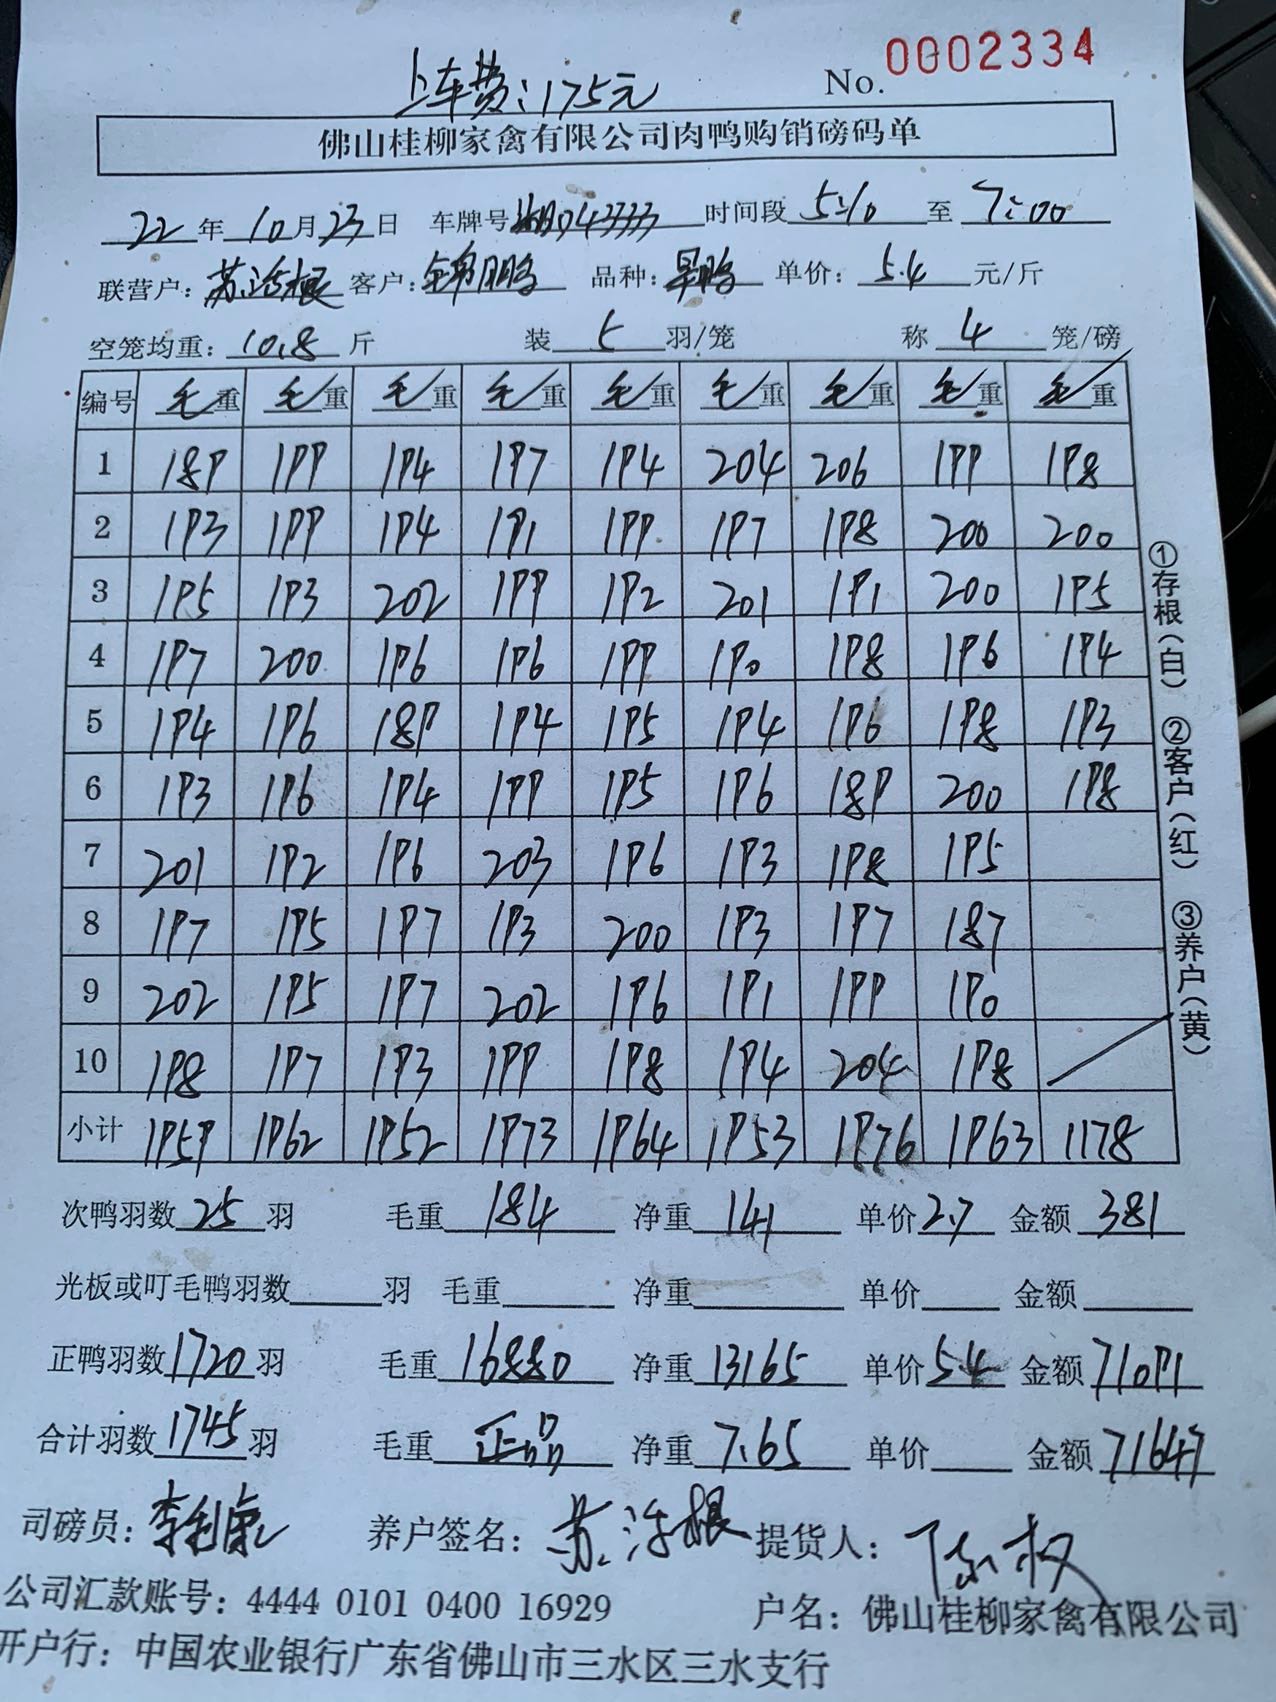 上车费:175元 No. 0002334
佛山桂柳家禽有限公司肉鸭购销磅码单
22年10月23日 车牌号 D43333 时间段 5:10 至 7:00
联营户:苏浩根 客户:锦鹏 品种:旱鸭 单价:5.4 元/斤
空笼均重:10.8斤 装 5 羽/笼 称 4 笼/磅
编号 毛重 毛重 毛重 毛重 毛重 毛重 毛重 毛重 毛重
1 189 199 194 197 194 204 206 199 198
2 193 199 194 191 199 197 198 200 200
3 195 193 202 199 192 201 191 200 195
4 197 200 196 196 199 190 198 196 194
5 194 196 189 194 195 194 196 198 193
6 193 196 194 199 195 196 189 200 198
7 201 192 196 203 196 193 198 195
8 197 195 197 193 200 193 197 187
9 202 195 197 202 196 191 199 190
10 198 197 193 199 198 194 204 198
小计 1959 1962 1952 1973 1964 1953 1976 1963 1178
次鸭羽数 25 羽 毛重 184 净重 141 单价 2.7 金额 381
光板或叮毛鸭羽数 羽 毛重 净重 单价 金额
正鸭羽数 1720 羽 毛重 16880 净重 13165 单价 5.4 金额 71091
合计羽数 1745 羽 毛重 正品 净重 7.65 单价 金额 71647
司磅员: 养户签名:苏浩根 提货人:陈权
公司汇款账号:4444 0101 0400 16929 户名:佛山桂柳家禽有限公司
开户行:中国农业银行广东省佛山市三水区三水支行
①存根(白) ②客户(红) ③养户(黄)